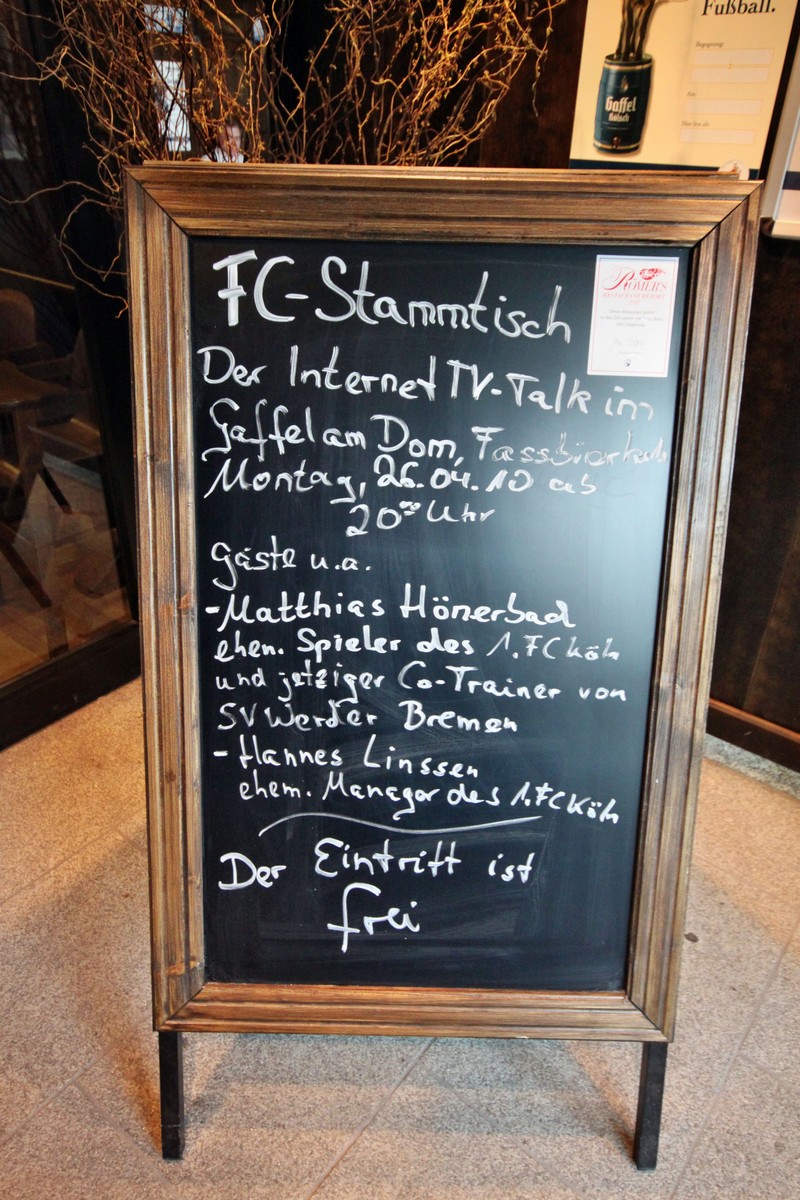 Fußball.
Begegnung:
Am:
Gaffel
Kölsch
FC-Stammtisch
RÖMER'S
RESTAURANT REPORT
Der Internet TV-Talk im
Gaffel am Dom, Fassbierbar
Montag, 26.04.10 ab
20⁰⁰ Uhr
Gäste u.a.
-Matthias Hönerbad
ehen. Spieler des 1.FC Köln
und jetziger Co-Trainer von
SV Werder Bremen
- Hannes Linssen
ehem. Manager des 1.FC Köln
Der Eintritt ist
frei